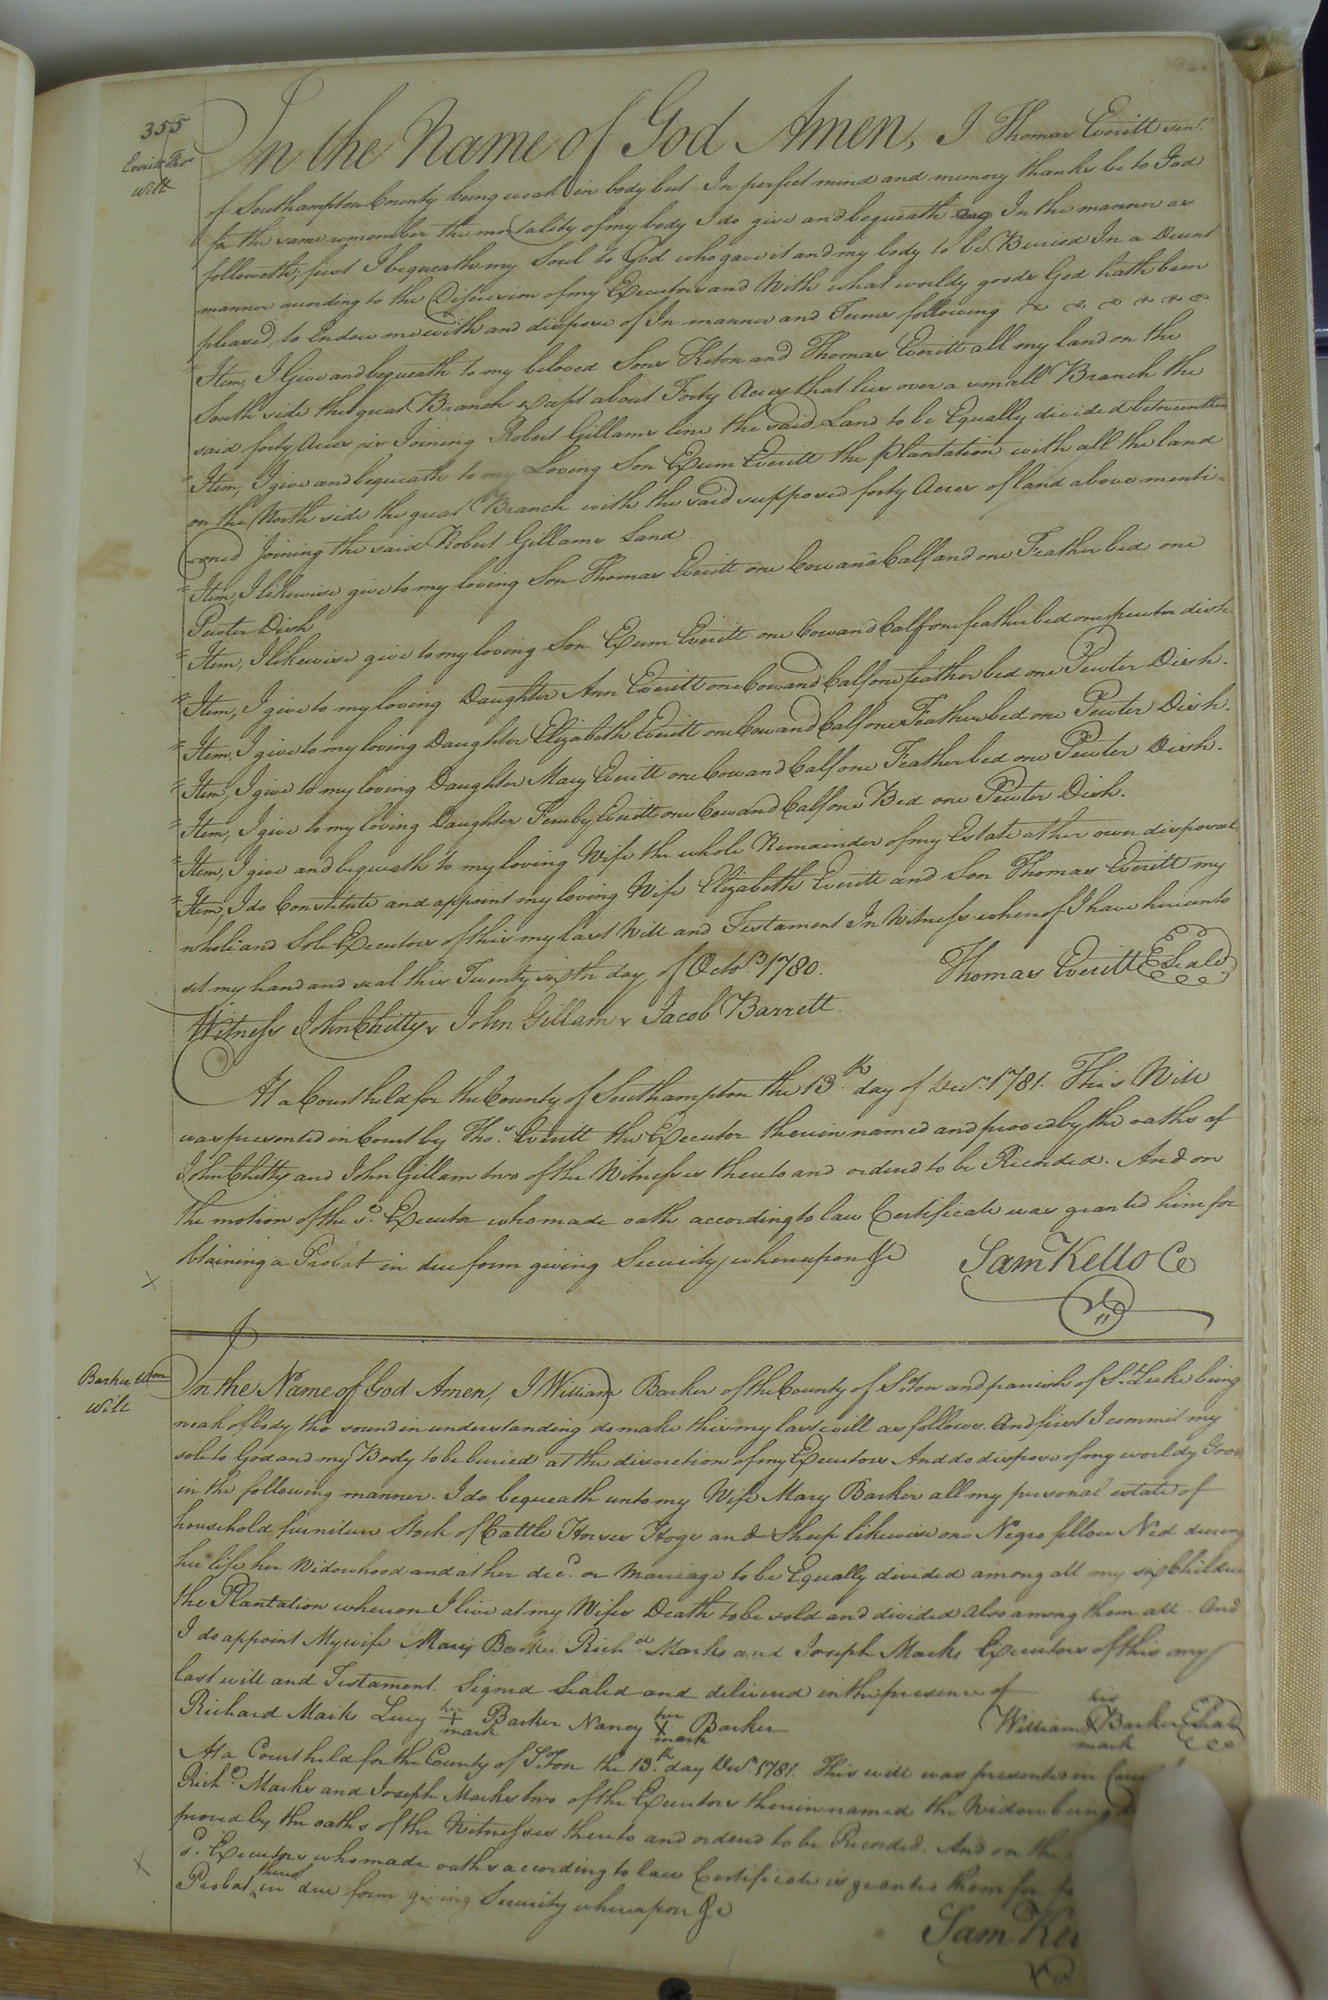 355
Everitt Thos
Will
In the Name of God Amen, I Thomas Everitt senr.
of Southampton County being weak in body but In perfect mind and memory thanks be to God
for the same remember the mortality of my body I do give and bequeath In the manner as
followeth; first I bequeath my Soul to God who gave it and my body to be Buried In a Decent
manner according to the Discression of my Executors and With what worldy goods God hath been
pleased, to Endow me with and dispose of In manner and Turms following
Item, I Give and bequeath to my beloved Sons Keton and Thomas Everitt all my land on the
South side the great Branch Exapt about Forty Acres that lies over a small Branch the
said forty Acres is Joining Robert Gillams line the said Land to be Equally divided between them
Item, I give and bequeath to my Loving Son Exum Everitt the Plantation with all the land
on the North side the great Branch with the said supposed forty Acres of land above menti-
oned Joining the said Robert Gillams Land.
Item, I likewise give to my loving Son Thomas Everitt one Cow and Calf and one Feather bed one
Pewter Dish
Item, I likewise give to my loving Son Exum Everitt one Cow and Calf one feather bed one pewter dish
Item, I give to my loving Daughter Ann Everitt one Cow and Calf one feather bed one Pewter Dish.
Item, I give to my loving Daughter Elizabeth Everitt one Cow and Calf one Feather bed one Pewter Dish.
Item, I give to my loving Daughter Mary Everitt one Cow and Calf one Feather bed one Pewter Dish.
Item, I give to my loving Daughter Fereby Everitt one Cow and Calf one Bed one Pewter Dish.
Item, I give and bequeath to my loving Wife the whole Remainder of my Estate at her own disposal.
Item, I do Constitute and appoint my loving Wife Elizabeth Everitt and Son Thomas Everitt my
whole and Sole Executors of this my last Will and Testament In Witness whereof I have hereunto
set my hand and seal this Twenty sixth day of Octor. 1780. Thomas Everitt Seald
Witness John Chitty, John Gillam, Jacob Barrett.
At a Court held for the County of Southampton the 13th. day of Decr. 1781. This Will
was presented in Court by Thos. Everitt the Executor therein named and proved by the oaths of
John Chitty and John Gillam two of the Witnesses thereto and ordered to be Recorded. And on
the motion of the sd. Executor who made oath according to law Certificate was granted him for
obtaining a Probat in due form giving Security whereupon &c Sam Kello Co
Barker Wm
Will
In the Name of God Amen, I William Barker of the County of S.ton and parrish of St. Luke being
weak of body tho sound in understanding do make this my last will as follows. And first I commit my
sole to God and my Body to be buried at the discretion of my Executors And do dispose of my worldy Goods
in the following manner. I do bequeath unto my Wife Mary Barker all my personal estate of
household furniture Stock of Cattle Horses Hogs and Sheep likewise one Negro fellow Ned during
her life her Widowhood and at her decd. or Marriage to be Equally divided among all my six Children
the Plantation whereon I live at my Wifes Death to be sold and divided also among them all. And
I do appoint My wife Mary Barker Richd. Marks and Joseph Marks Executors of this my
last will and Testament. Signed Sealed and delivered in the presence of
Richard Marks Lucy her + mark Barker Nancy her X mark Barker William his X mark Barker Seal
At a Court held for the County of S.ton the 13th. day Decr. 1781. This will was presented in
Richd. Marks and Joseph Marks two of the Executors therein named the Widow being
proved by the oaths of the Witnesses thereto and ordered to be Recorded. And on the
sd. Executors who made oaths according to law Certificate is granted them for
Probat thereof in due form giving Security whereupon &c
Sam